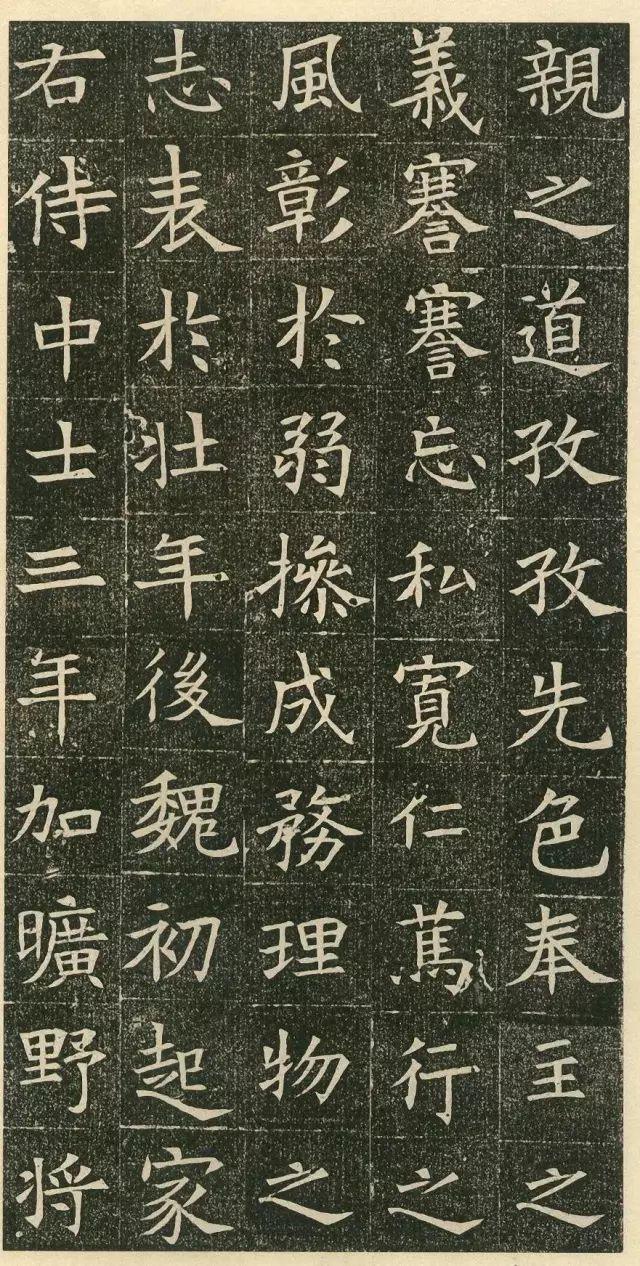 親之道孜孜先色奉主之
義謇謇忘私寬仁篤行之
風彰於弱摻成務理物之
志表於壯年後魏初起家
右侍中士三年加曠野將